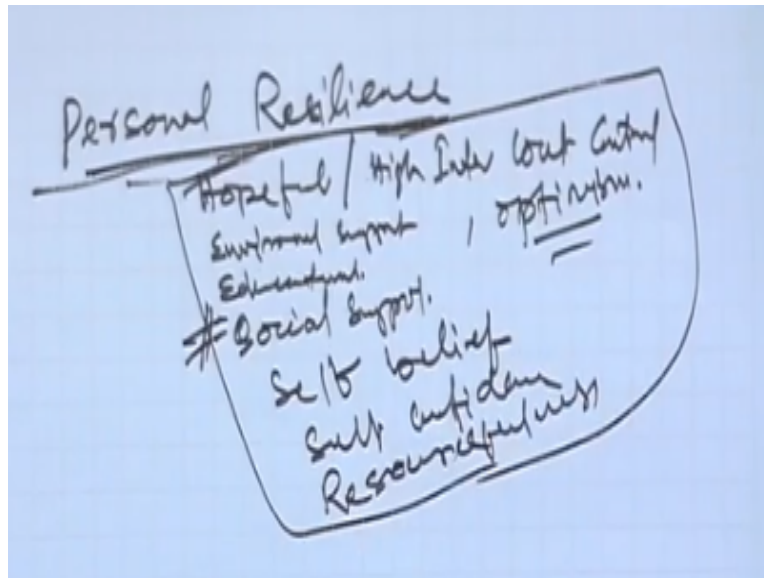 Personal Resilience
Hopeful / High Inter Cont
Environmental support , optimism.
Educational.
# Social Support.
Self belief
Self confidence
Resourcefulness